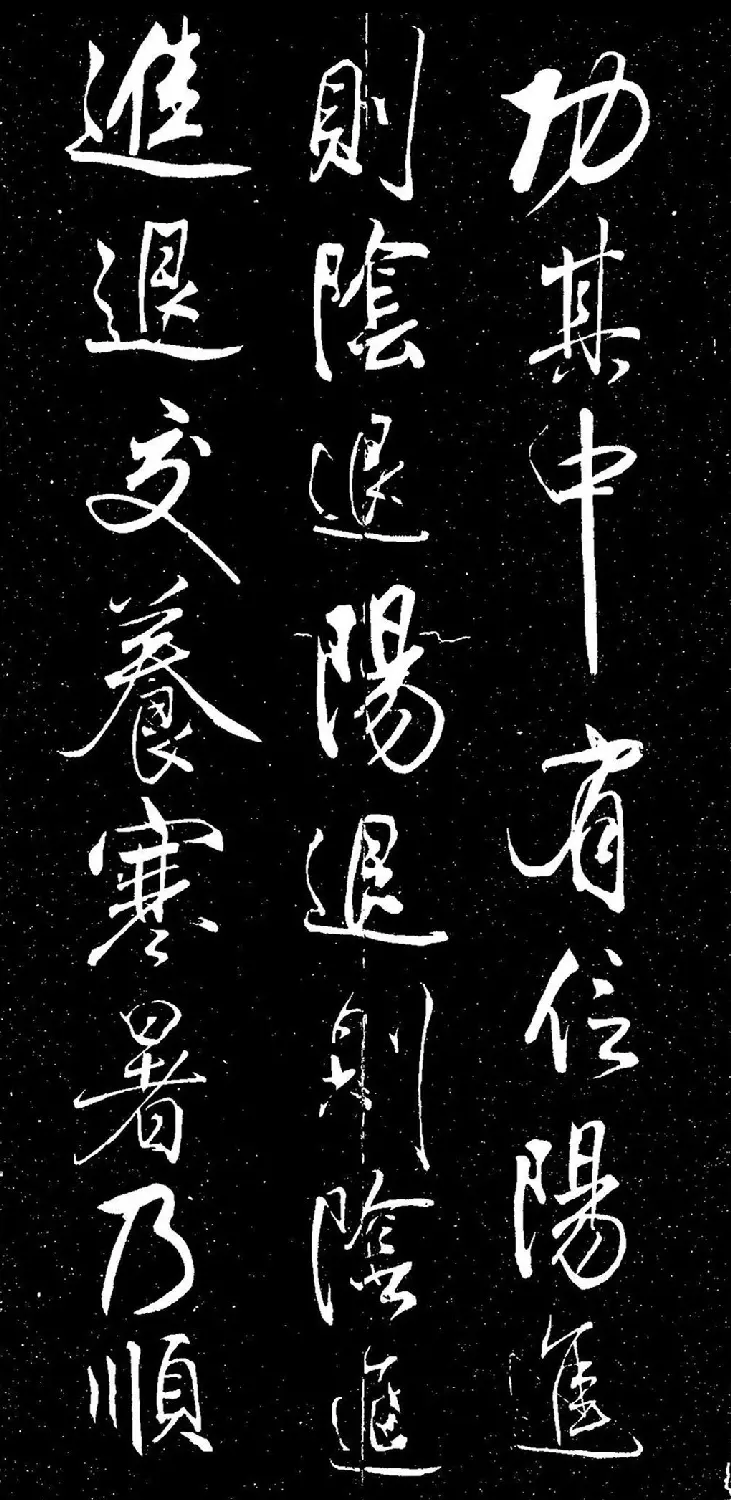 功其中有信陽進
則陰退陽退則陰進
進退交養寒暑乃順